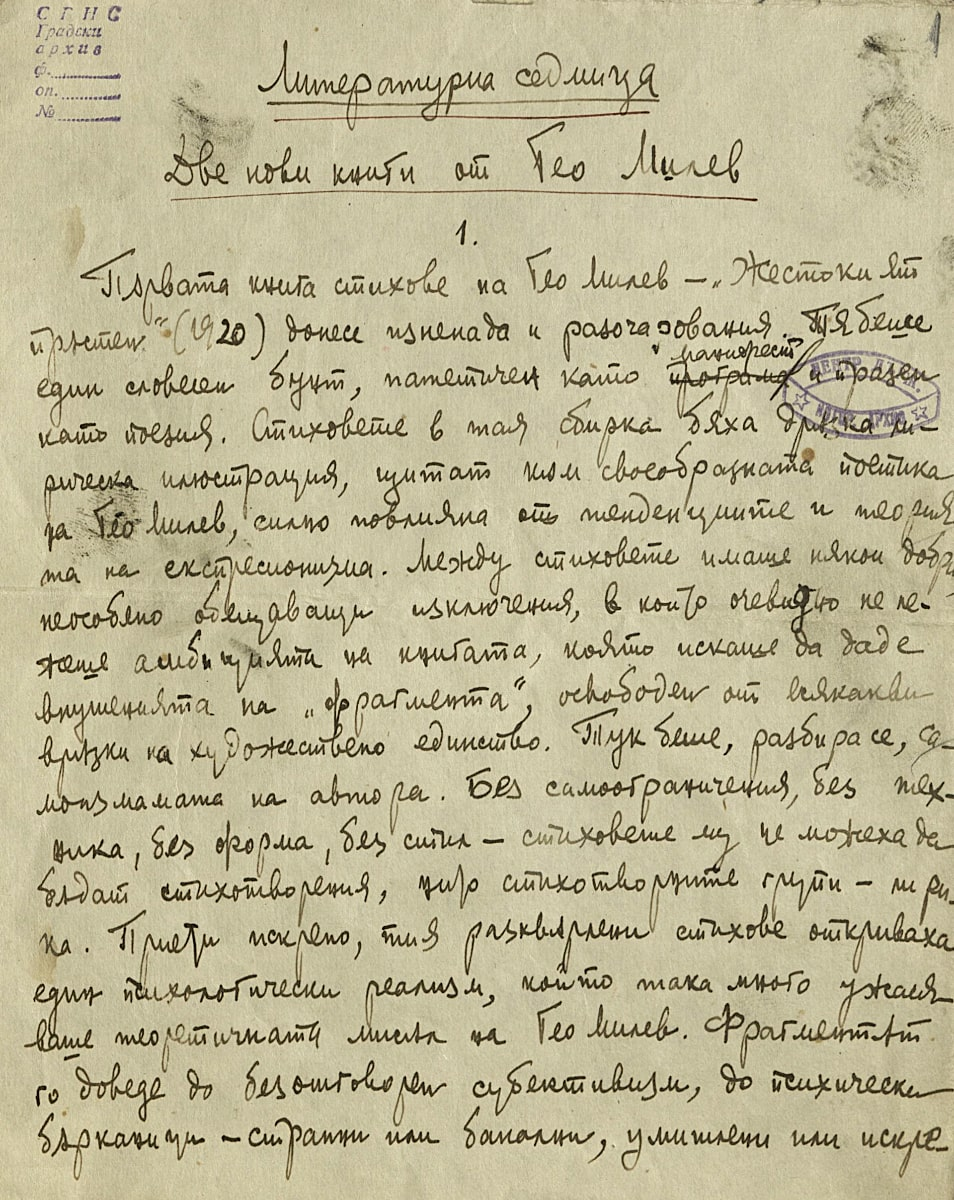 С Г Н С
Градски
архив
ф.
оп.
№
1
Литературна седмица
Две нови книги от Гео Милев
1.
Първата книга стихове на Гео Милев – „Жестокият
пръстен" (1920) донесе изненада и разочарования. Тя беше
манифест
един словесен бунт, патетичен като програма и празен
като поезия. Стиховете в тая сбирка бяха дръзка ли-
рическа илюстрация, цитат към своеобразната поетика
на Гео Милев, силно повлияна от тенденциите и теория
та на експресионизма. Между стиховете имаше някои добри
неособено обещаващи изключения, в които очевидно не ле-
жеше амбицията на книгата, която искаше да даде
внушенията на „фрагмента", освободен от всякакви
връзки на художествено единство. Тук беше, разбира се, са-
моизмамата на автора. Без самоограничения, без тех-
ника, без форма, без стил – стиховете му не можеха да
бъдат стихотворения, нито стихотворните групи – лири-
ка. Приети искрено, тия разхвърлени стихове откриваха
един психологически реализм, който така много ужася
ваше теоретичната мисъл на Гео Милев. Фрагментът
го доведе до безотговорен субективизм, до психически
бърканици – странни или банални, умишлени или искре-